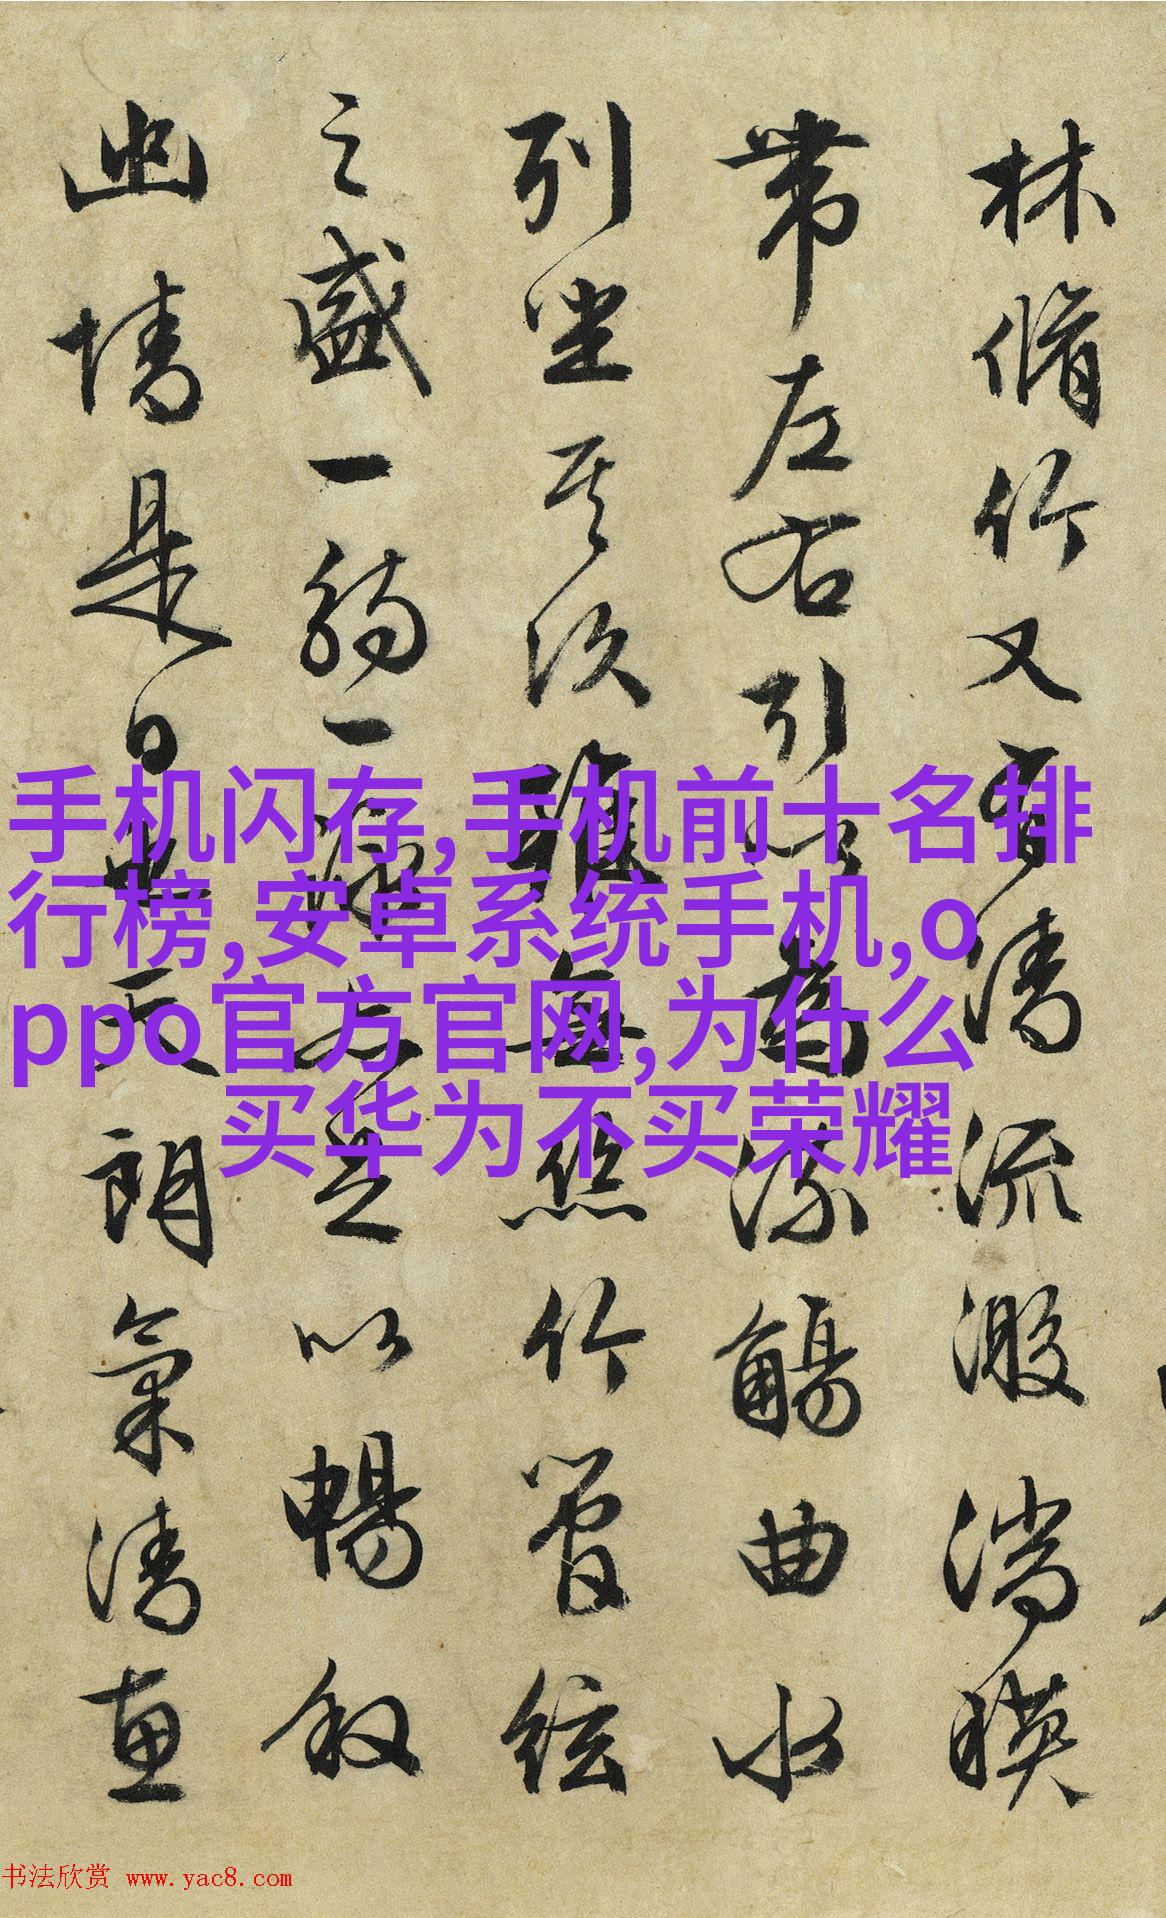 林脩竹又有清流激湍暎
帶左右引以為流觴曲水
列坐其次雖無絲竹管絃
之盛一觴一詠亦足以暢叙
幽情是日也天朗氣清惠
手机闪存,手机前十名排
行榜,安卓系统手机,o
ppo官方官网,为什么
买华为不买荣耀
书法欣赏 www.yac8.com